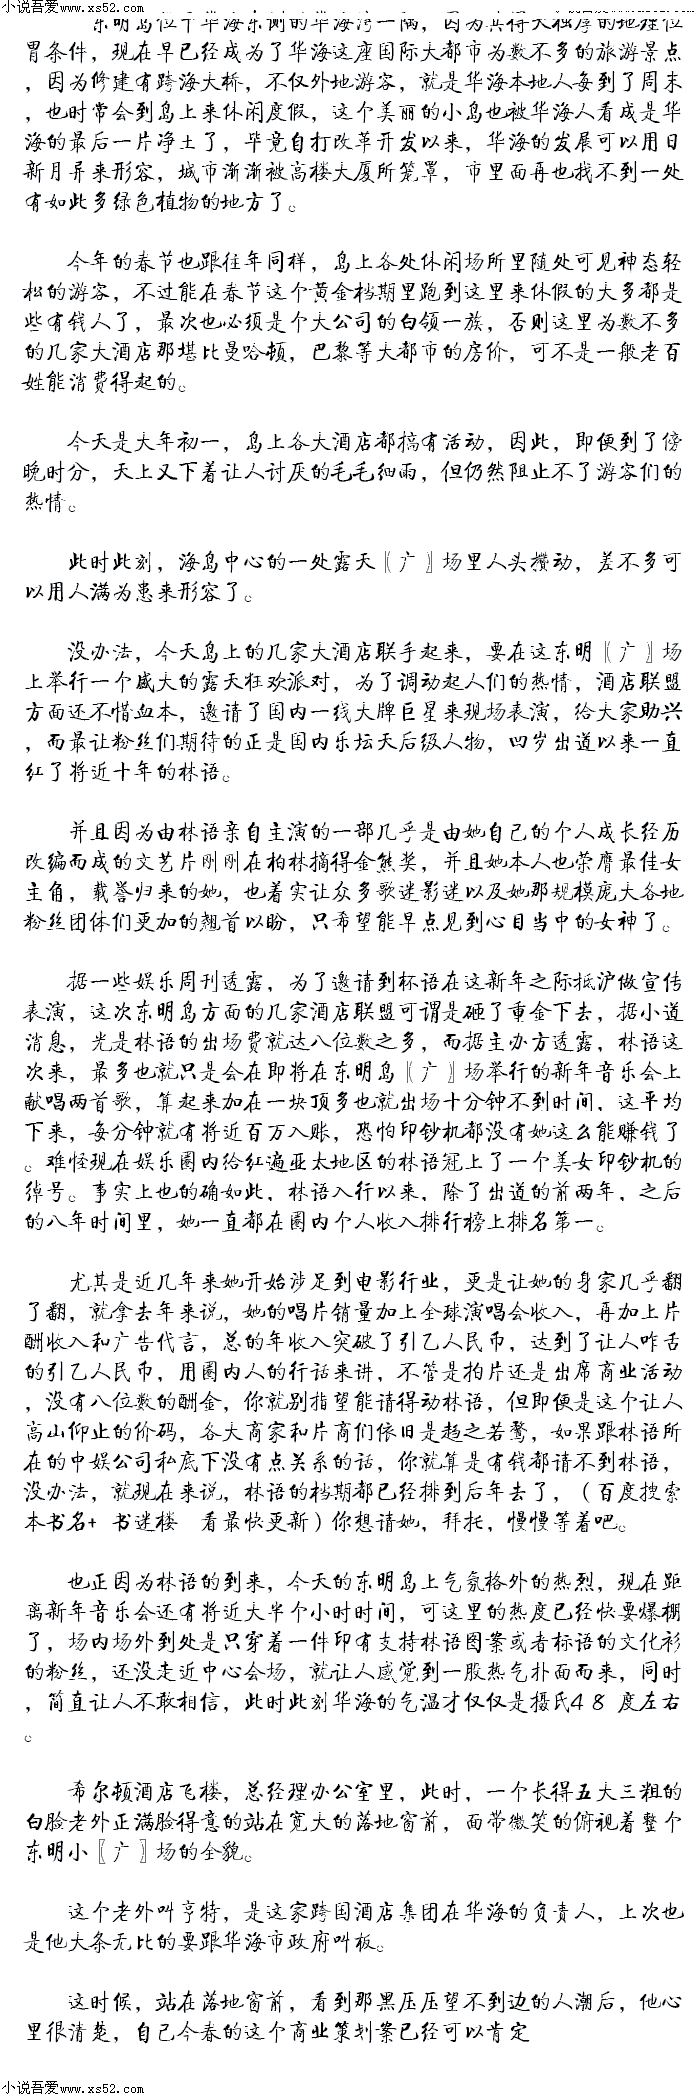 小说吾爱www.xs52.com
小说吾爱www.xs52.com
东明岛位于华海东侧的华海湾一隅，因为其得天独厚的地理位
置条件，现在早已经成为了华海这座国际大都市为数不多的旅游景点
，因为修建有跨海大桥，不仅外地游客，就是华海本地人每到了周末
，也时常会到岛上来休闲度假，这个美丽的小岛也被华海人看成是华
海的最后一片净土了，毕竟自打改革开发以来，华海的发展可以用日
新月异来形容，城市渐渐被高楼大厦所笼罩，市里面再也找不到一处
有如此多绿色植物的地方了。
今年的春节也跟往年同样，岛上各处休闲场所里随处可见神态轻
松的游客，不过能在春节这个黄金档期里跑到这里来休假的大多都是
些有钱人了，最次也必须是个大公司的白领一族，否则这里为数不多
的几家大酒店那堪比曼哈顿，巴黎等大都市的房价，可不是一般老百
姓能消费得起的。
今天是大年初一，岛上各大酒店都搞有活动，因此，即便到了傍
晚时分，天上又下着让人讨厌的毛毛细雨，但仍然阻止不了游客们的
热情。
此时此刻，海岛中心的一处露天〖广〗场里人头攒动，差不多可
以用人满为患来形容了。
没办法，今天岛上的几家大酒店联手起来，要在这东明〖广〗场
上举行一个盛大的露天狂欢派对，为了调动起人们的热情，酒店联盟
方面还不惜血本，邀请了国内一线大牌巨星来现场表演，给大家助兴
，而最让粉丝们期待的正是国内乐坛天后级人物，四岁出道以来一直
红了将近十年的林语。
并且因为由林语亲自主演的一部几乎是由她自己的个人成长经历
改编而成的文艺片刚刚在柏林摘得金熊奖，并且她本人也荣膺最佳女
主角，载誉归来的她，也着实让众多歌迷影迷以及她那规模庞大各地
粉丝团体们更加的翘首以盼，只希望能早点见到心目当中的女神了。
据一些娱乐周刊透露，为了邀请到林语在这新年之际抵沪做宣传
表演，这次东明岛方面的几家酒店联盟可谓是砸了重金下去，据小道
消息，光是林语的出场费就达八位数之多，而据主办方透露，林语这
次来，最多也就只是会在即将在东明岛〖广〗场举行的新年音乐会上
献唱两首歌，算起来加在一块顶多也就出场十分钟不到时间，这平均
下来，每分钟就有将近百万入账，恐怕印钞机都没有她这么能赚钱了
。难怪现在娱乐圈内给红遍亚太地区的林语冠上了一个美女印钞机的
绰号。事实上也的确如此，林语入行以来，除了出道的前两年，之后
的八年时间里，她一直都在圈内个人收入排行榜上排名第一。
尤其是近几年来她开始涉足到电影行业，更是让她的身家几乎翻
了翻，就拿去年来说，她的唱片销量加上全球演唱会收入，再加上片
酬收入和广告代言，总的年收入突破了引乙人民币，达到了让人咋舌
的引乙人民币，用圈内人的行话来讲，不管是拍片还是出席商业活动
，没有八位数的酬金，你就别指望能请得动林语，但即便是这个让人
高山仰止的价码，各大商家和片商们依旧是趋之若鹜，如果跟林语所
在的中娱公司私底下没有点关系的话，你就算是有钱都请不到林语，
没办法，就现在来说，林语的档期都已经排到后年去了，（百度搜索
本书名+ 书迷楼 看最快更新）你想请她，拜托，慢慢等着吧。
也正因为林语的到来，今天的东明岛上气氛格外的热烈，现在距
离新年音乐会还有将近大半个小时时间，可这里的热度已经快要爆棚
了，场内场外到处是只穿着一件印有支持林语图案或者标语的文化衫
的粉丝，还没走近中心会场，就让人感觉到一股热气扑面而来，同时
，简直让人不敢相信，此时此刻华海的气温才仅仅是摄氏48 度左右
。
希尔顿酒店飞楼，总经理办公室里，此时，一个长得五大三粗的
白脸老外正满脸得意的站在宽大的落地窗前，面带微笑的俯视着整个
东明小〖广〗场的全貌。
这个老外叫亨特，是这家跨国酒店集团在华海的负责人，上次也
是他大条无比的要跟华海市政府叫板。
这时候，站在落地窗前，看到那黑压压望不到边的人潮后，他心
里很清楚，自己今春的这个商业策划案已经可以肯定
小说吾爱www.xs52.com